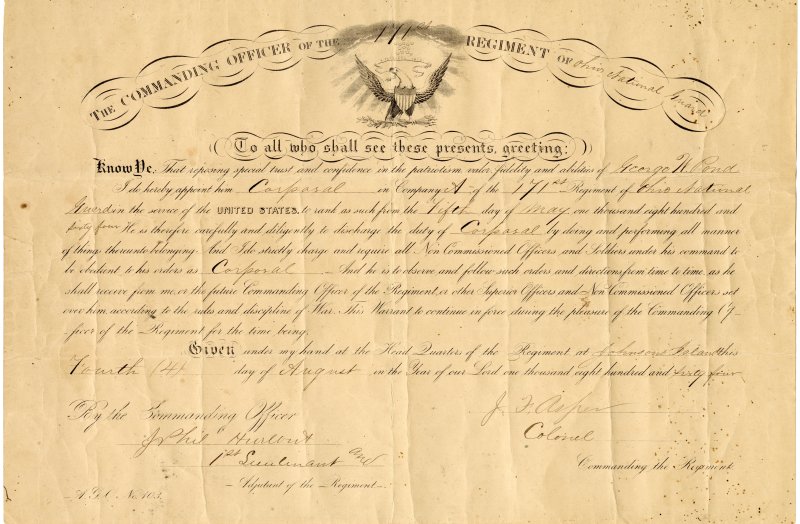 THE COMMANDING OFFICER OF THE 171st REGIMENT OF Ohio National Guard,
To all who shall see these presents, greeting:
Know Ye, That reposing special trust and confidence in the patriotism, valor, fidelity and abilities of George W Pond
I do hereby appoint him Corporal in Company A of the 171st Regiment of Ohio National
Guard in the service of the UNITED STATES, to rank as such from the Fifth day of May one thousand eight hundred and
sixty four He is therefore carefully and diligently to discharge the duty of Corporal by doing and performing all manner
of things thereunto belonging. And I do strictly charge and require all Non Commissioned Officers and Soldiers under his command to
be obedient to his orders as Corporal And he is to observe and follow such orders and directions from time to time, as he
shall receive from me, or the future Commanding Officer of the Regiment, or other Superior Officers and Non Commissioned Officers set
over him, according to the rules and discipline of War. This Warrant to continue in force during the pleasure of the Commanding Of-
ficer of the Regiment for the time being.
Given under my hand at the Head Quarters of the Regiment at Johnsons Island this
Fourth (4) day of August in the Year of our Lord one thousand eight hundred and sixty four
By the Commanding Officer
J. F. Asper
Colonel
Commanding the Regiment.
J Phil Hurlbut
1st Lieutenant and
Adjutant of the Regiment.
A.G.O. No. 103.